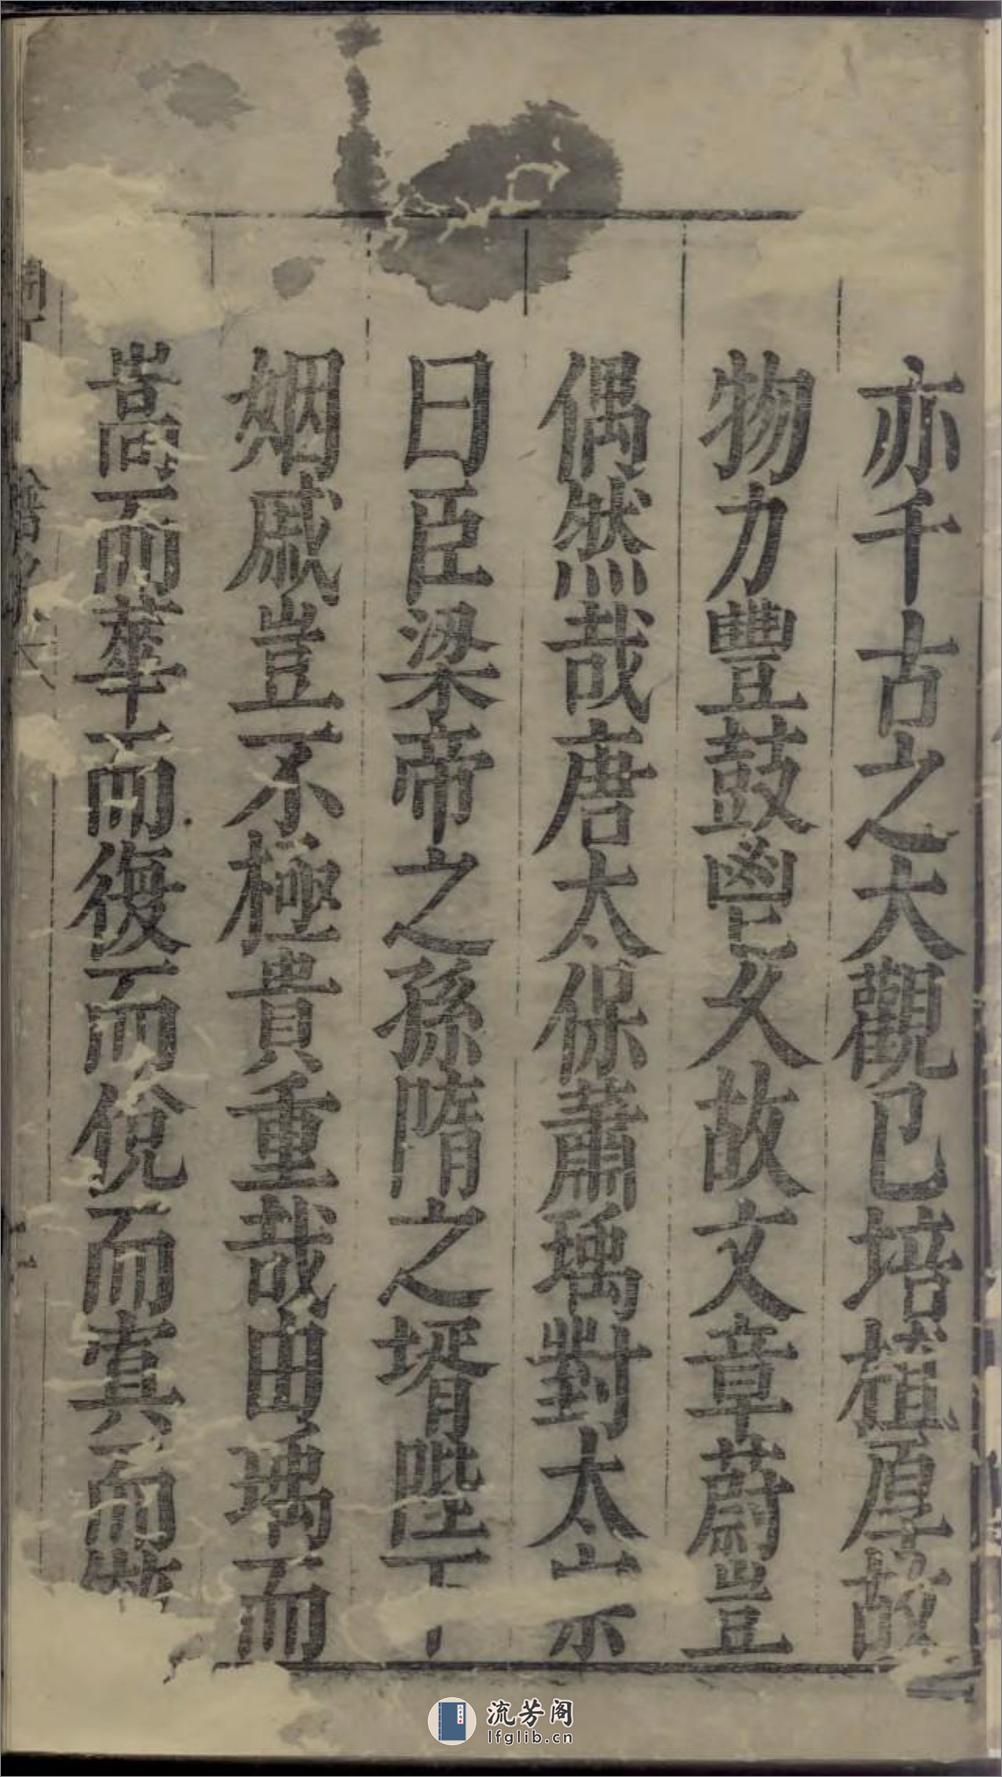 亦千古之大觀已培植厚故
物力豐鼓鬯久故文章蔚豈
偶然哉唐太保蕭瑀對太宗
曰臣梁帝之孫隋之壻陛下
姻戚豈不極貴重哉由瑀而
嵩而華而復而俛而寘而
流芳阁
lfglib.cn